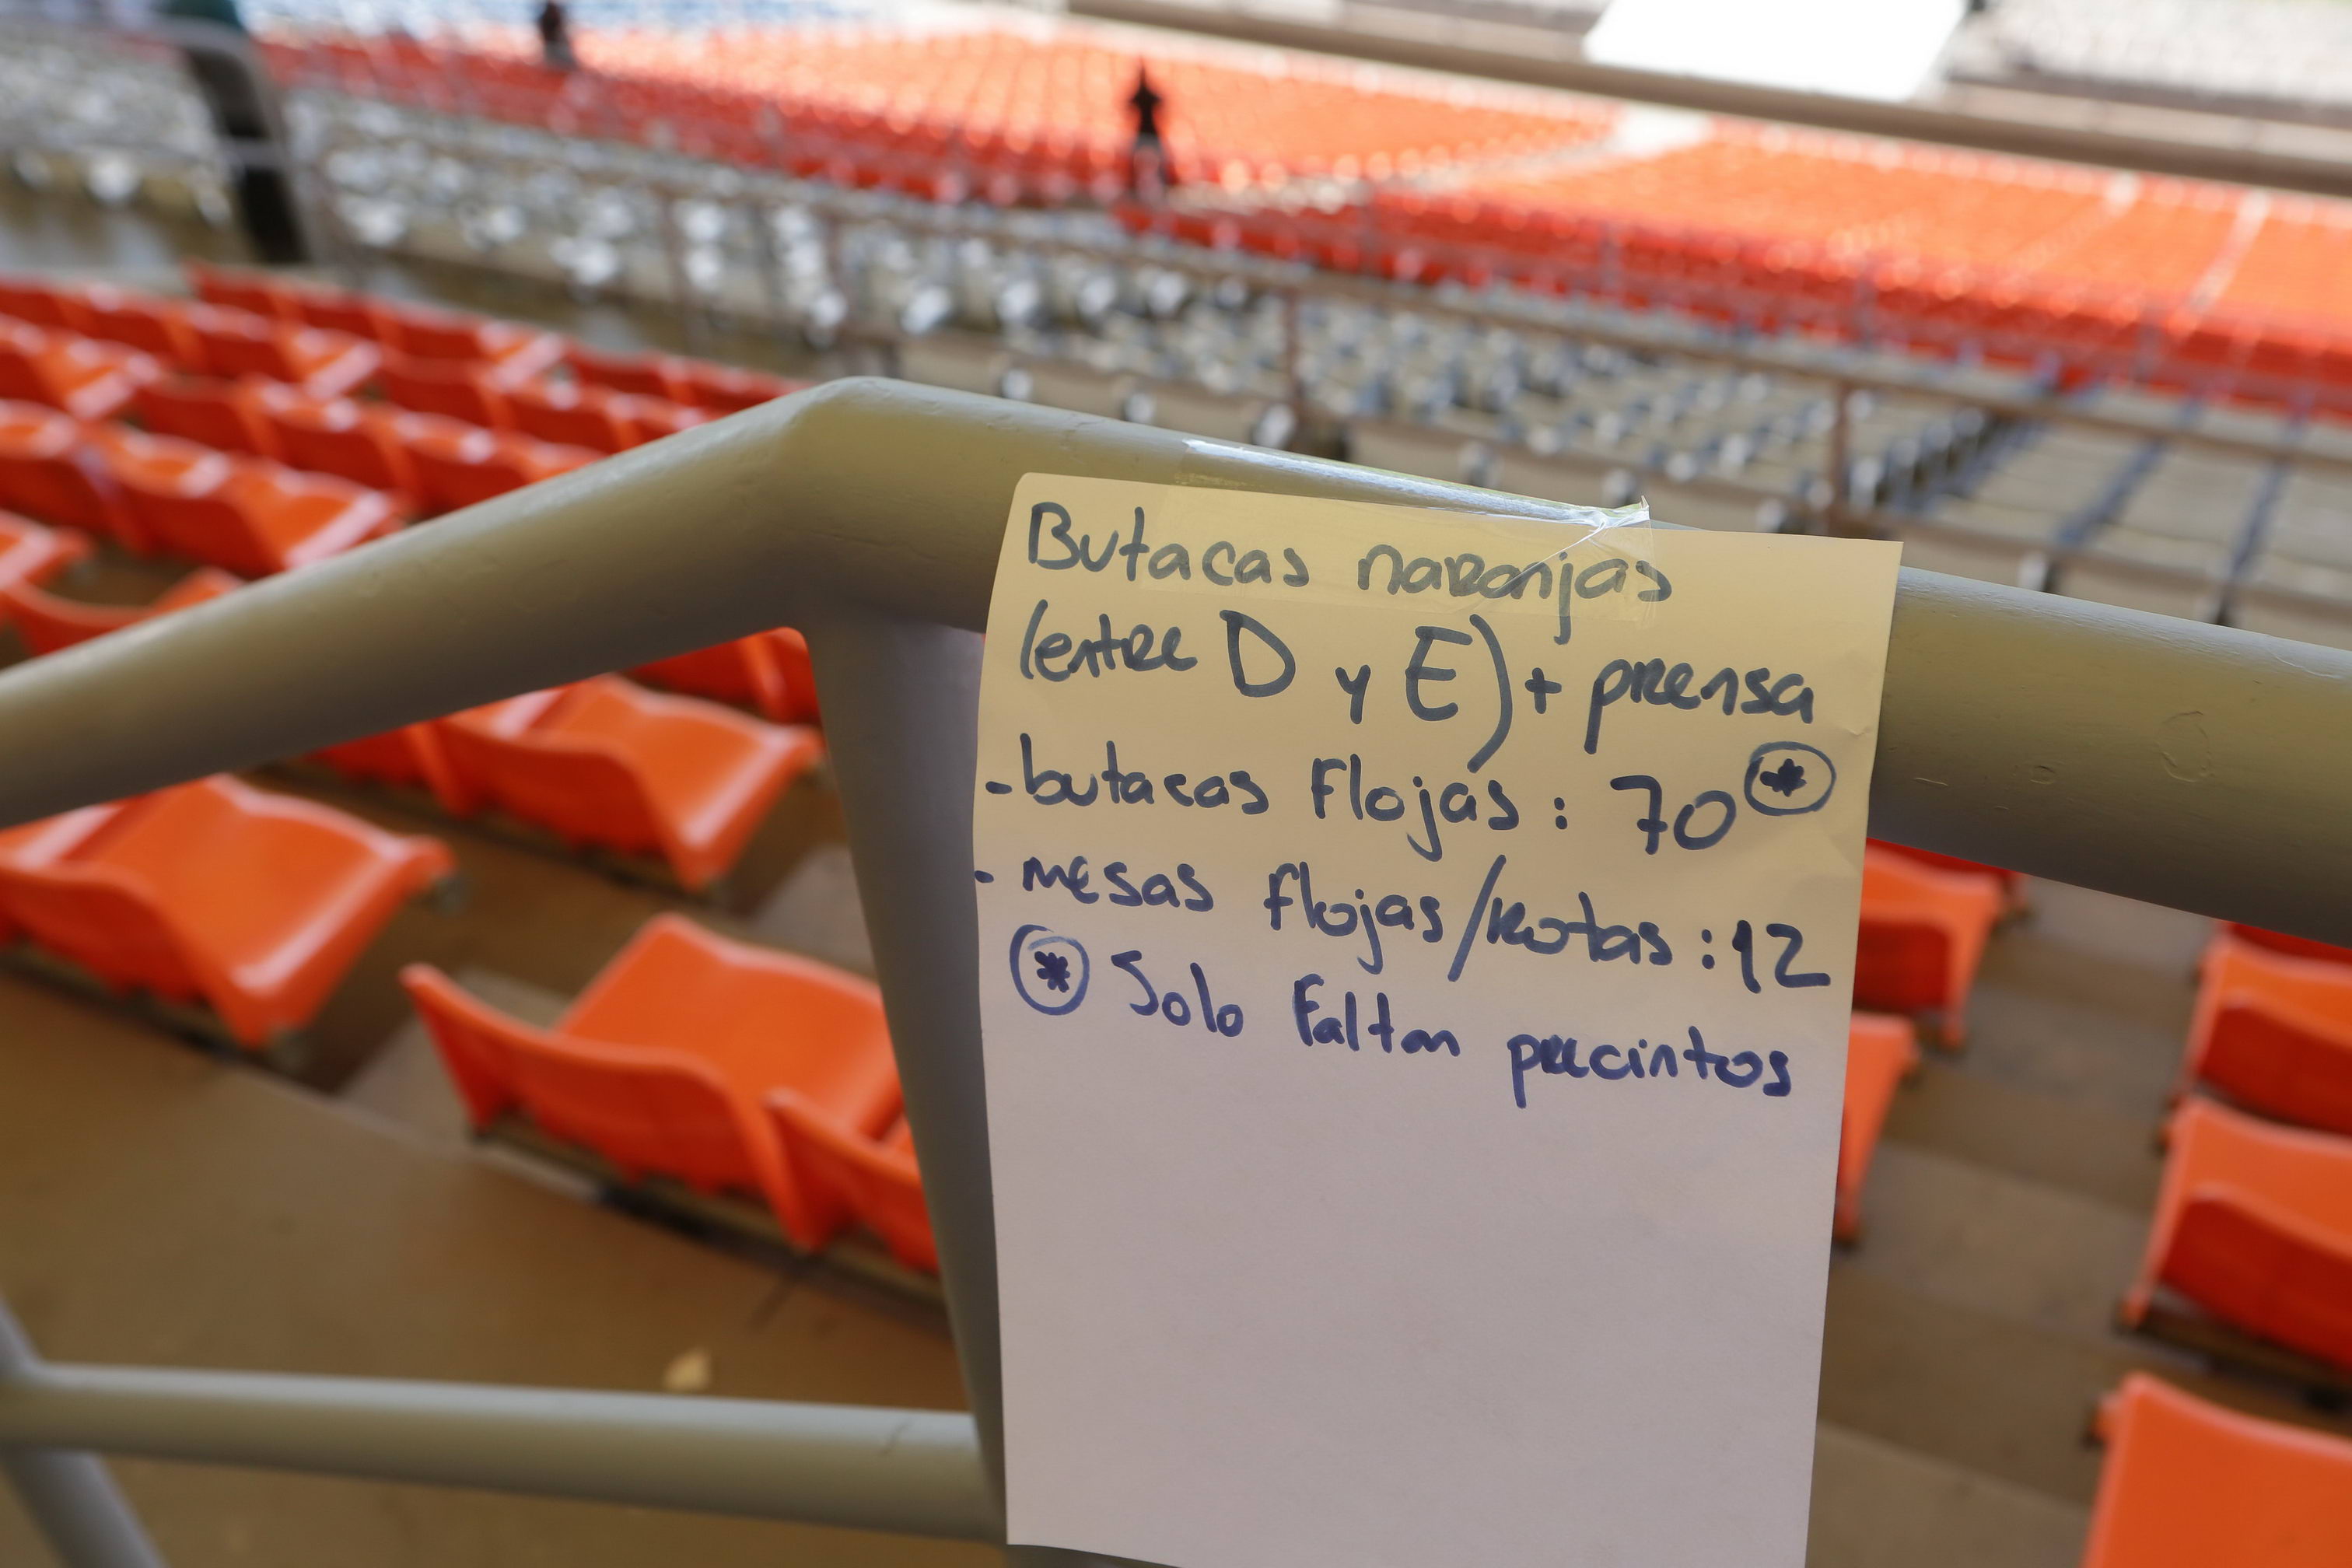 Butacas naranjas
(entre D y E) + prensa
- butacas flojas : 70 *
- mesas flojas/rotas : 12
* Solo faltan precintos